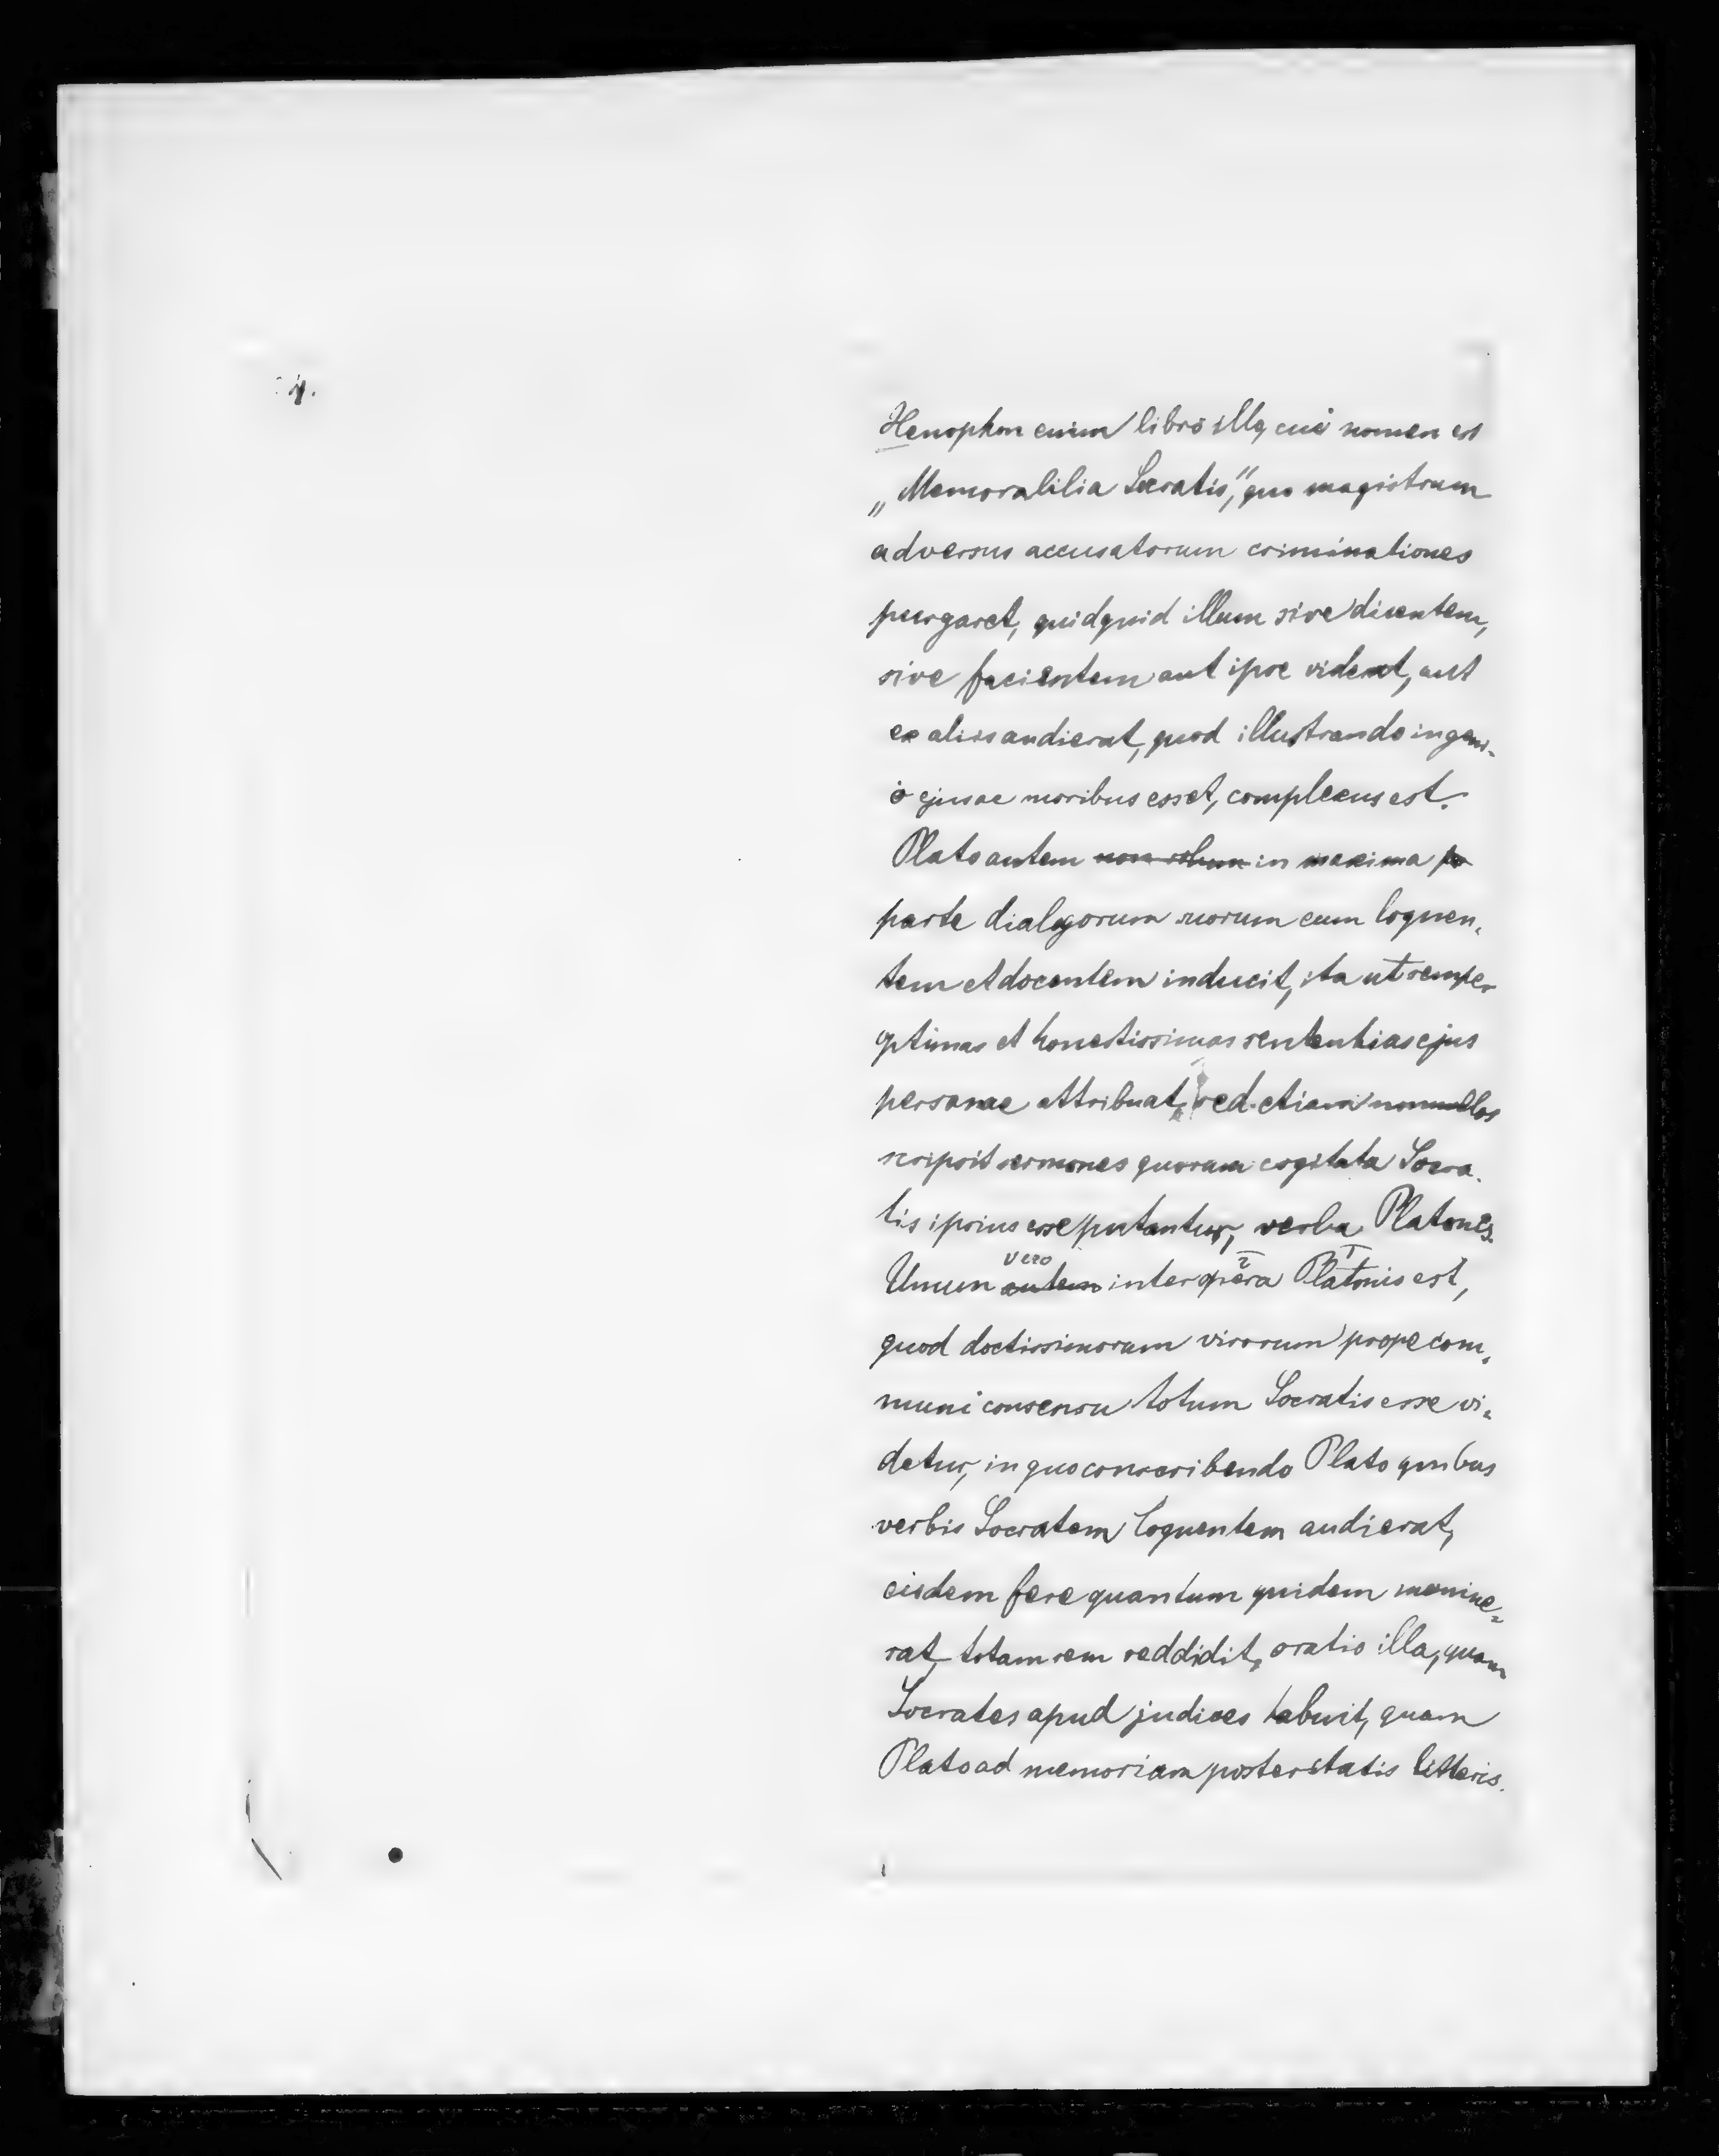 4.
Xenophon enim libro illo, cui nomen est
„Memorabilia Socratis,“ quo magistrum
adversus accusatorum criminationes
purgaret, quidquid illum sive dicentem,
sive facientem aut ipse viderat, aut
ex aliis audierat, quod illustrando ingeni-
o ejus ac moribus esset, complexus est.
Plato autem non solum in maxima pa
parte dialogorum suorum eum loquen-
tem et docentem inducit, ita ut semper
optimas et honestissimas sententias ejus
personae attribuat, sed etiam nonnullos
scripsit sermones quorum cogitata Socra-
tis ipsius esse putantur, verba Platonis.
Unum autem vero inter opera Platonis est,
quod doctissimorum virorum prope com-
muni consensu totum Socratis esse vi-
detur, in quo conscribendo Plato quibus
verbis Socratem loquentem audierat,
eisdem fere quantum quidem memine-
rat, totam rem reddidit, oratio illa, quam
Socrates apud judices habuit, quam
Plato ad memoriam posteritatis litteris